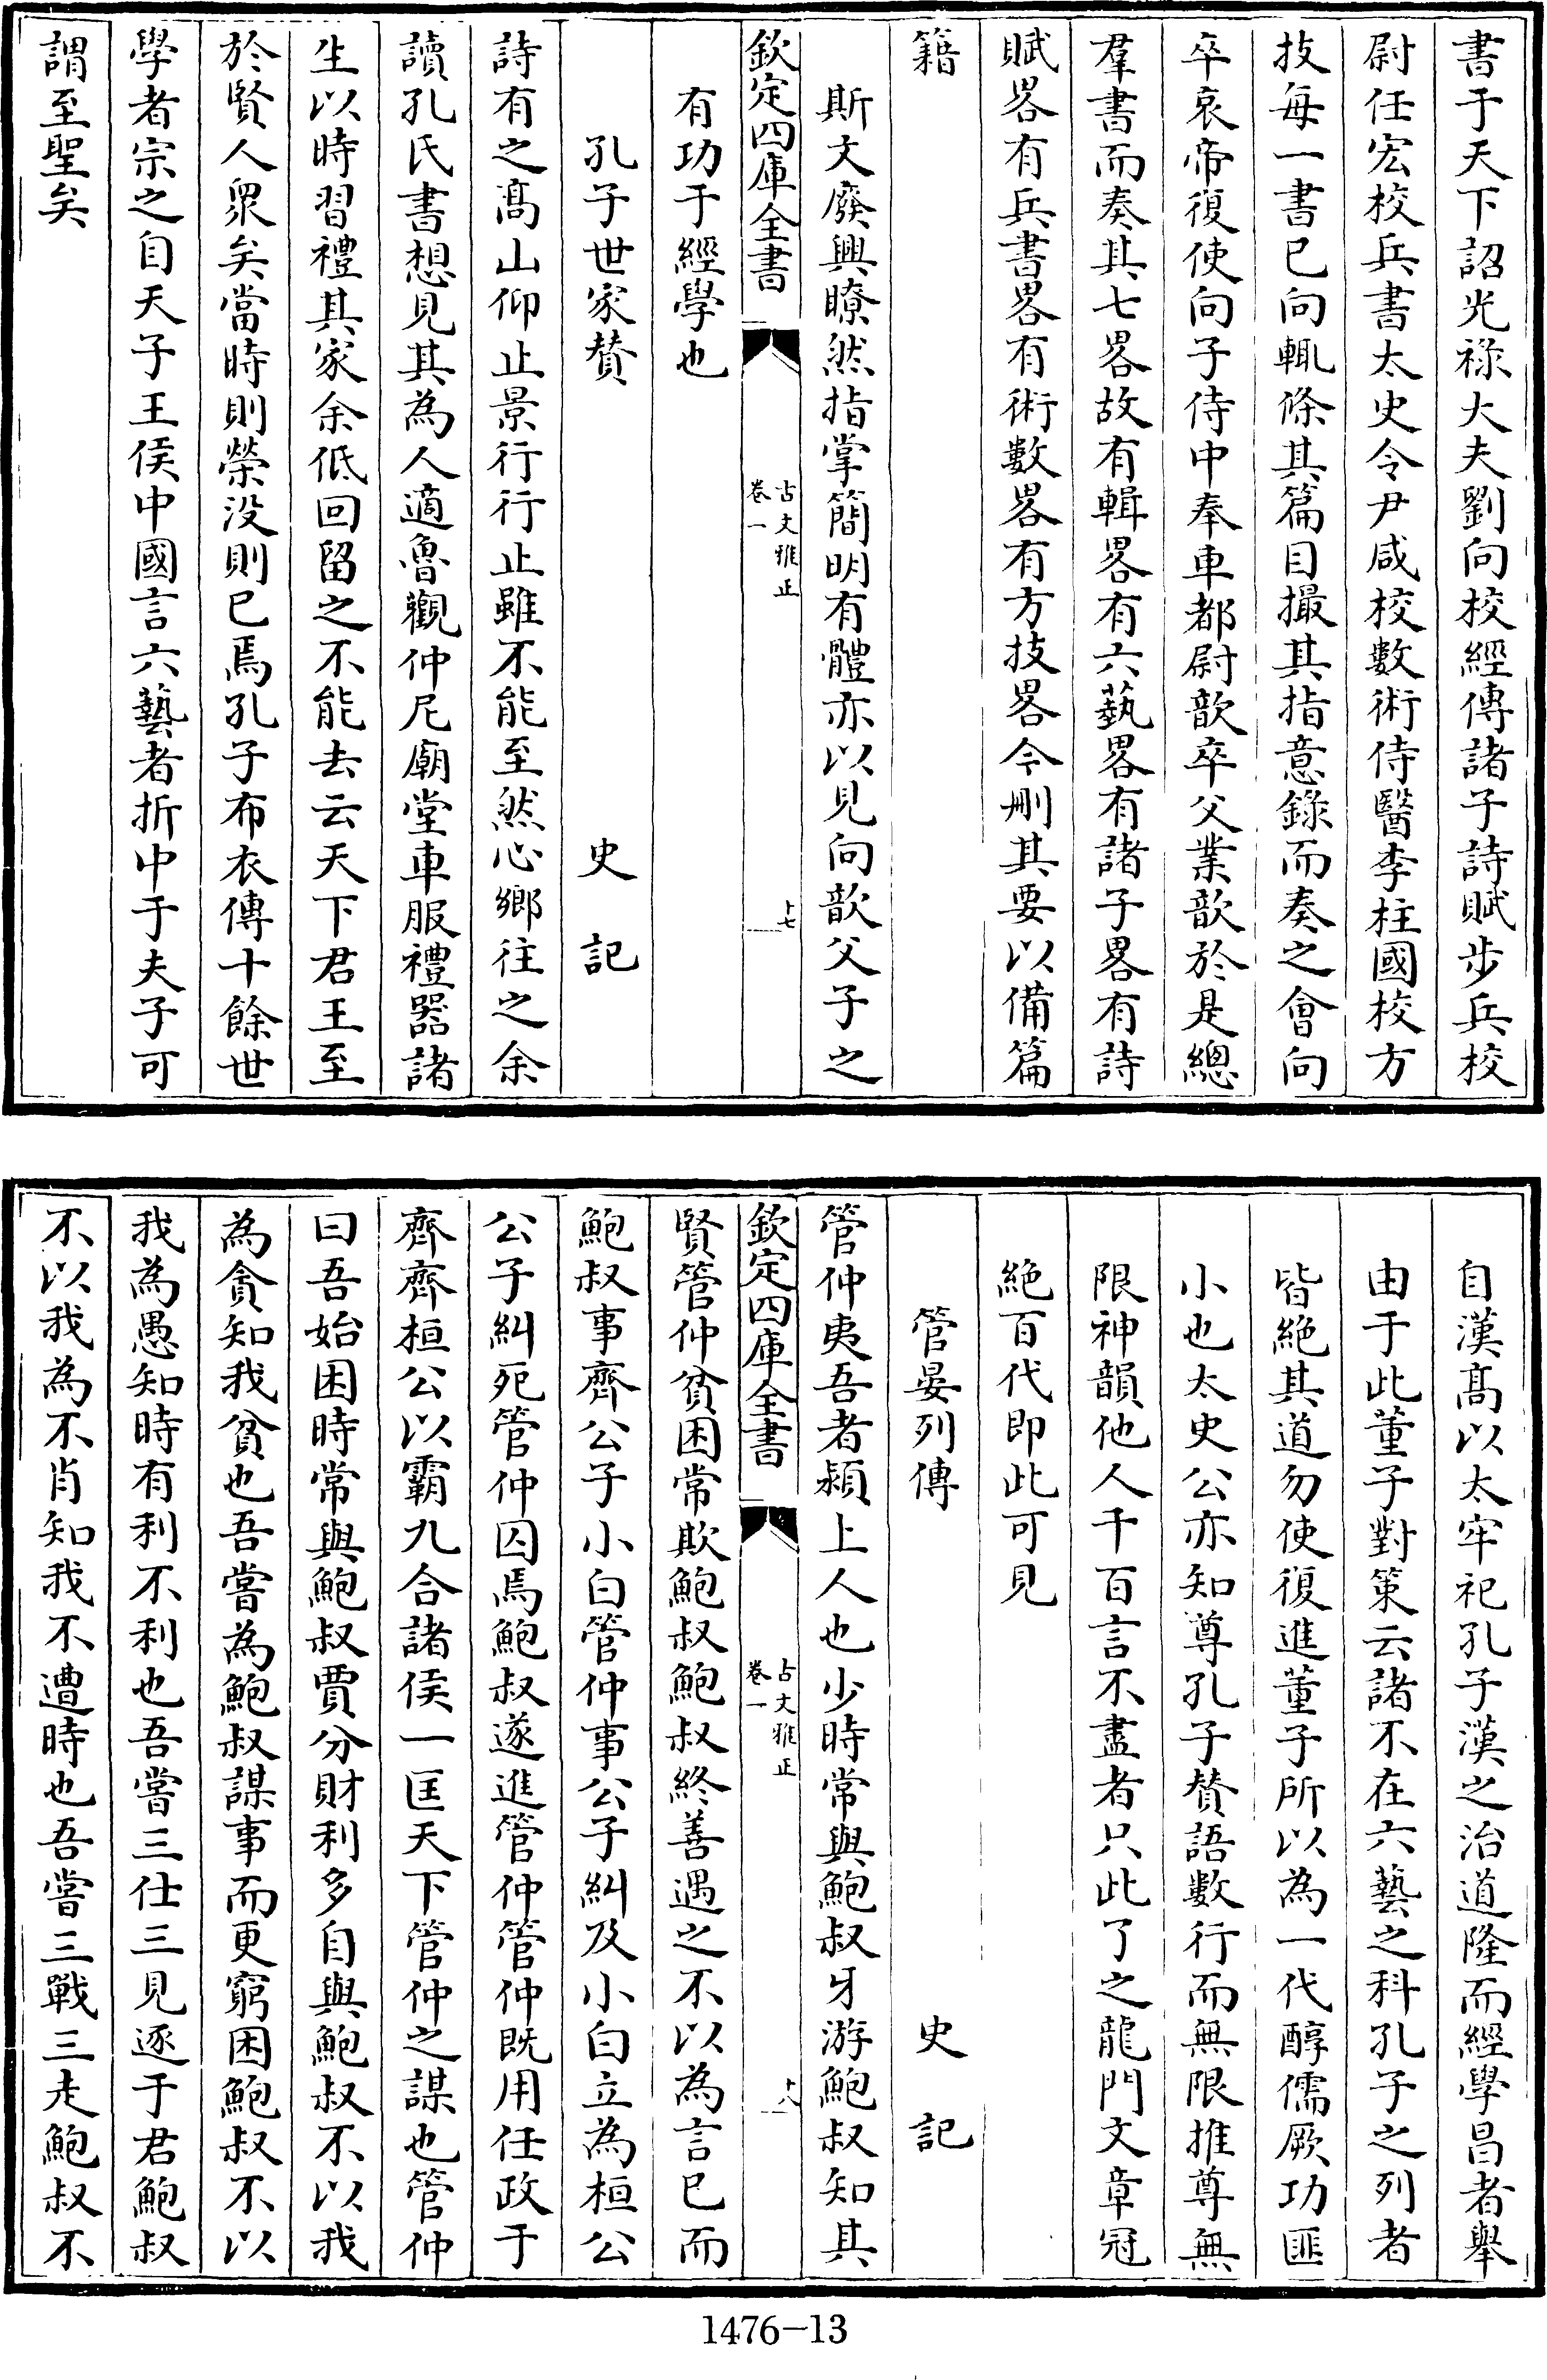 書于天下詔光祿大夫劉向校經傳諸子詩賦步兵校
尉任宏校兵書太史令尹咸校數術侍醫李柱國校方
技每一書已向輒條其篇目撮其指意錄而奏之會向
卒哀帝復使向子侍中奉車都尉歆卒父業歆於是總
羣書而奏其七畧故有輯畧有六藝畧有諸子畧有詩
賦畧有兵書畧有術數畧有方技畧今刪其要以備篇
籍
斯文廢興瞭然指掌簡明有體亦以見向歆父子之
欽定四庫全書
古文雅正
卷一
十七
有功于經學也
孔子世家贊 史記
詩有之髙山仰止景行行止雖不能至然心鄉往之余
讀孔氏書想見其為人適魯觀仲尼廟堂車服禮器諸
生以時習禮其家余低回留之不能去云天下君王至
於賢人衆矣當時則榮没則已焉孔子布衣傳十餘世
學者宗之自天子王侯中國言六藝者折中于夫子可
謂至聖矣
自漢髙以太牢祀孔子漢之治道隆而經學昌者舉
由于此董子對策云諸不在六藝之科孔子之列者
皆絶其道勿使復進董子所以為一代醇儒厥功匪
小也太史公亦知尊孔子贊語數行而無限推尊無
限神韻他人千百言不盡者只此了之龍門文章冠
絶百代即此可見
管晏列傳 史記
管仲夷吾者潁上人也少時常與鮑叔牙游鮑叔知其
欽定四庫全書
古文雅正
卷一
十八
賢管仲貧困常欺鮑叔鮑叔終善遇之不以為言已而
鮑叔事齊公子小白管仲事公子糾及小白立為桓公
公子糾死管仲囚焉鮑叔遂進管仲管仲既用任政于
齊齊桓公以霸九合諸侯一匡天下管仲之謀也管仲
曰吾始困時常與鮑叔賈分財利多自與鮑叔不以我
為貪知我貧也吾嘗為鮑叔謀事而更窮困鮑叔不以
我為愚知時有利不利也吾嘗三仕三見逐于君鮑叔
不以我為不肖知我不遭時也吾嘗三戰三走鮑叔不
1476-13